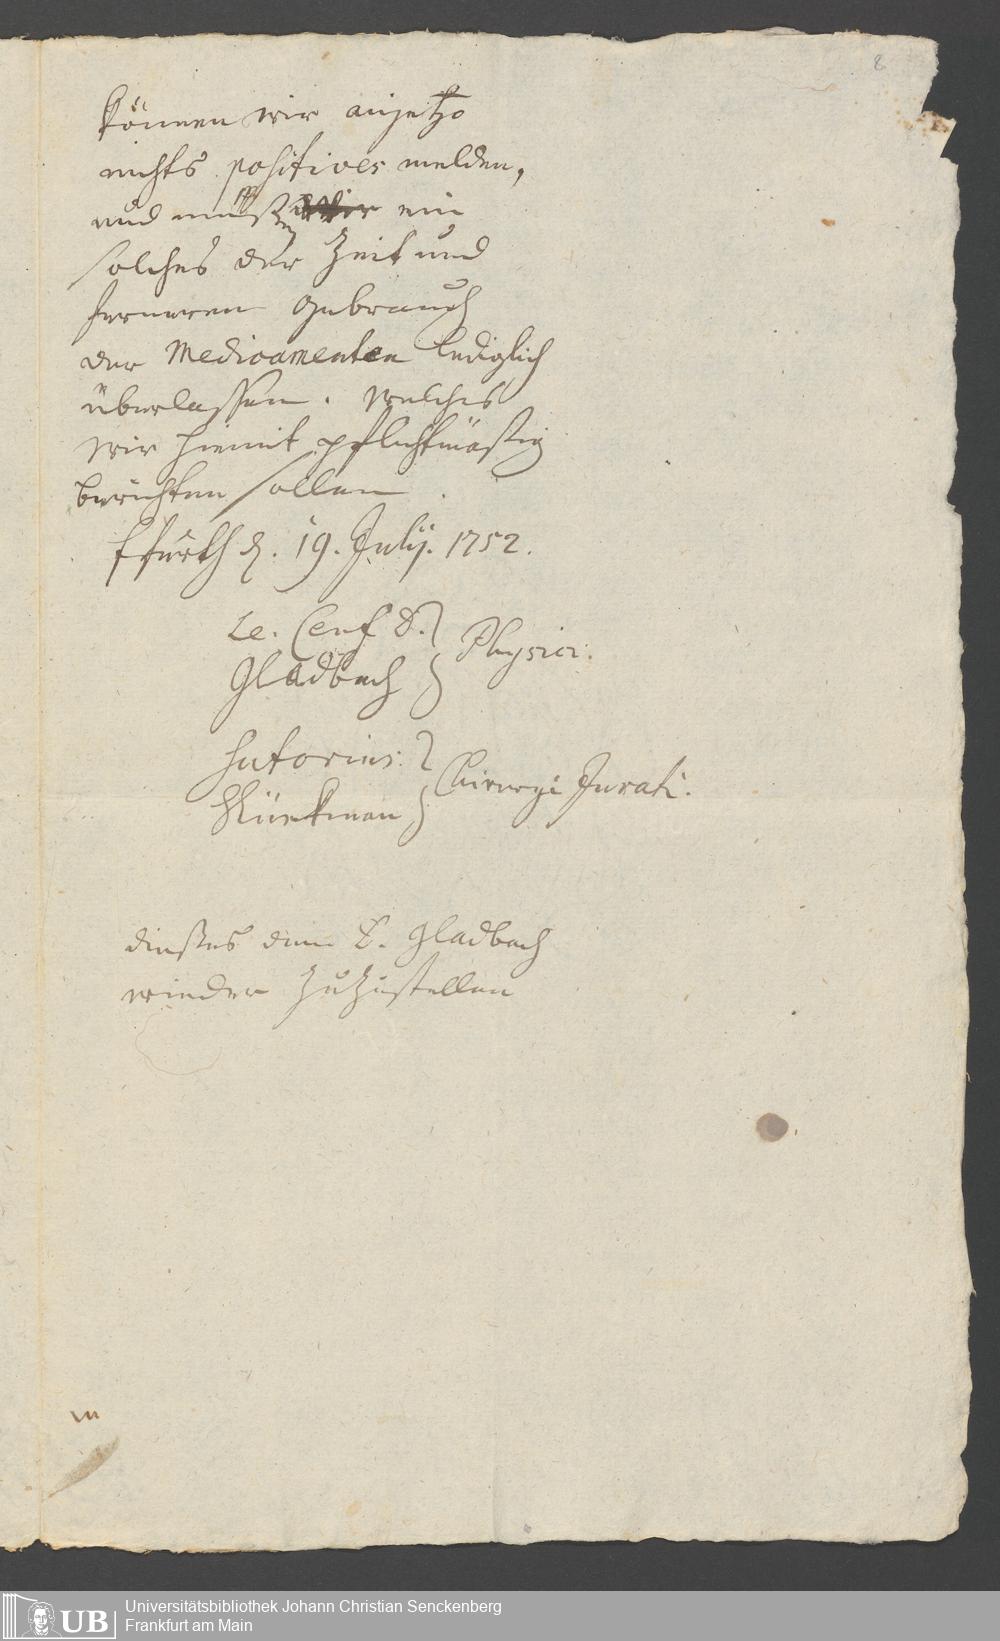 8
können wir anjetzo
nichts positives melden,
und müßen ein
solches der Zeit und
ferneren Gebrauch
der Medicamenten lediglich
überlassen. Welches
wir hiemit pflichtmäßig
berichten sollen.
Ffurth d. 19. Julij. 1752.
Le Cerf D.
Gladbach
Physici.
Sutorius.
Chirurgi Jurati.
dießes dem D. Gladbach
wieder zuzustellen
UB
Universitätsbibliothek Johann Christian Senckenberg
Frankfurt am Main